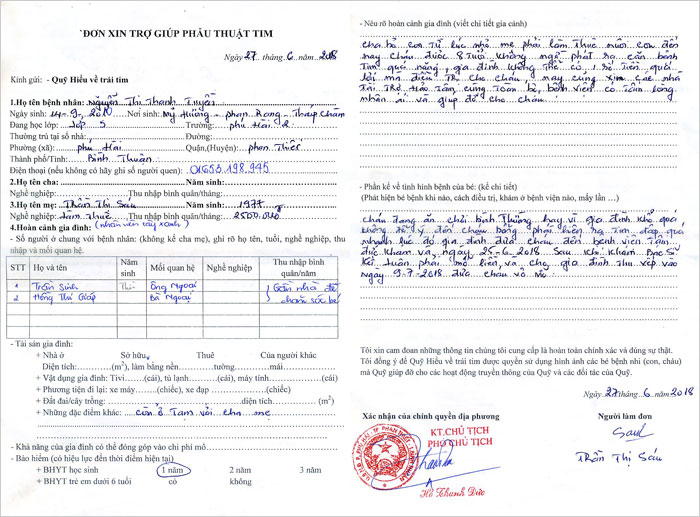 ĐƠN XIN TRỢ GIÚP PHẪU THUẬT TIM
Ngày 27 tháng 6 năm 2018
Kính gửi: - Quỹ Hiểu về trái tim
1.Họ tên bệnh nhân: Nguyễn Thị Thanh Tuyền
Ngày sinh: 14-9-2010 Nơi sinh: Mỹ Hương - phan Rang - Tháp Chàm
Đang học lớp: Lớp 5 Trường: phú Hài 2
Thường trú tại số nhà: Đường:
Phường (xã): phú Hài Quận,(Huyện): phan Thiết
Thành phố/Tỉnh: Bình Thuận
Điện thoại (nếu không có hãy ghi số người quen): 01653.198.945
2.Họ tên cha: Năm sinh:
Nghề nghiệp: Thu nhập bình quân/tháng:
3.Họ tên mẹ: Trần Thị Sáu Năm sinh: 1977
Nghề nghiệp: Làm Thuê Thu nhập bình quân/tháng: 2500.000
4.Hoàn cảnh gia đình: (nhân viên cây xanh)
- Số người ở chung với bệnh nhân: (không kể cha mẹ), ghi rõ họ tên, tuổi, nghề nghiệp, thu
nhập và mối quan hệ.
STT Họ và tên Năm sinh Mối quan hệ Nghề nghiệp Thu nhập bình quân/năm
1 Trần Sinh Ông Ngoại Gần nhà để
2 Hồng Thị Giáp Bà Ngoại chăm sóc bé
- Tài sản gia đình:
+ Nhà ở Sở hữu Thuê Của người khác
Diện tích: (m²), làm bằng nền tường mái
+ Vật dụng gia đình: Tivi (cái), tủ lạnh (cái), máy tính (cái), máy (cái)
+ Phương tiện đi lại: xe máy (chiếc), xe đạp (chiếc)
+ Đất đai/cây trồng: diện tích (m²)
+ Những đặc điểm khác: còn ở Tạm với cha mẹ
- Khả năng của gia đình có thể đóng góp vào chi phí mổ
- Bảo hiểm (có hiệu lực đến thời điểm hiện tại)
+ BHYT học sinh 1 năm 2 năm 3 năm
+ BHYT trẻ em dưới 6 tuổi có không
- Nêu rõ hoàn cảnh gia đình (viết chi tiết gia cảnh)
cha bỏ con Từ lúc nhỏ mẹ phải làm thuê nuôi con đến
nay cháu được 8 Tuổi không ngờ phát hạ căn bệnh
Tim quá nặng, gia đình không thể có số Tiền quá
lời mà điều Trị cho cháu, nay cúng xin các nhà
Tài Trợ Hảo Tâm, cùng Toàn bộ bệnh viện có Tấm lòng
nhân ái và giúp đỡ cho cháu
- Phần kể về tình hình bệnh của bé: (kể chi tiết)
(Phát hiện bé bệnh khi nào, cách điều trị, khám ở bệnh viện nào, mấy lần …)
cháu đang ăn chơi bình Thường hay vì gia đình khổ quá
không để ý đến cháu bỗng phát hiện hạ Tim đập quá
nhanh lúc đó gia đình đưa cháu đến bệnh viện Tâm
đức khám và ngày 25-6-2018 Sau khi khám Bác Sĩ
kết luận phải mổ liền và cho gia đình thu xếp vào
Ngày 9-7-2018 đưa cháu vô Mổ
Tôi xin cam đoan những thông tin chúng tôi cung cấp là hoàn toàn chính xác và đúng sự thật.
Tôi đồng ý để Quỹ Hiểu về trái tim được quyền sử dụng hình ảnh các bé bệnh nhi (con, cháu)
mà Quỹ giúp đỡ cho các hoạt động truyền thông của Quỹ và các đối tác của Quỹ.
Ngày 27 tháng 6 năm 2018
Xác nhận của chính quyền địa phương Người làm đơn
KT.CHỦ TỊCH
PHÓ CHỦ TỊCH
Sau
Trần Thị Sáu
Hồ Thanh Đức